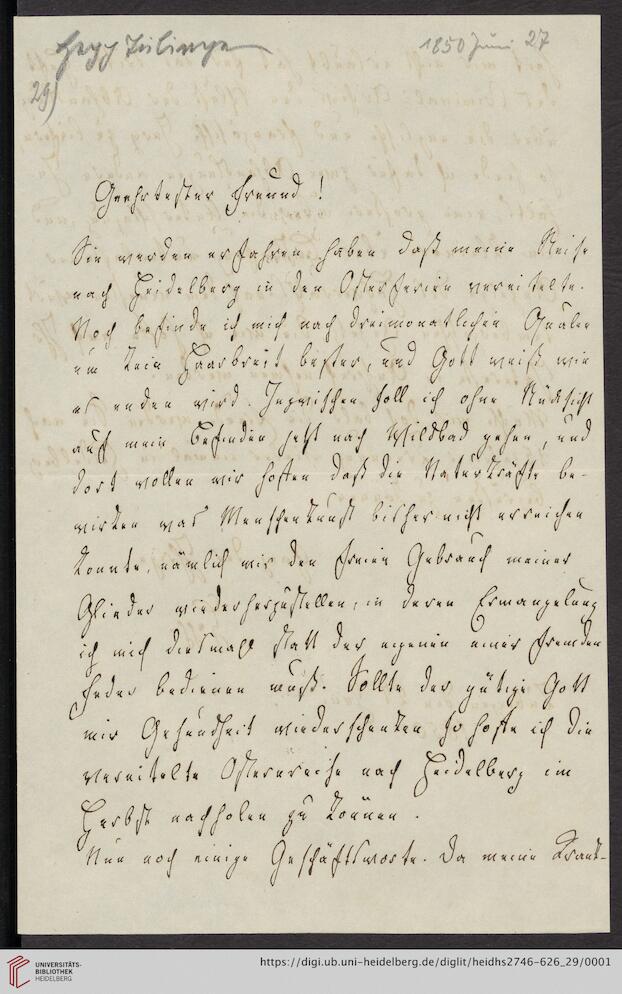 1850 Juni 27
29)
Geehrtester Freund!
Sie werden erfahren haben daß meine Reise
nach Heidelberg in den Osterferien vereitelte.
Noch befinde ich mich nach dreimonatlichen Quälen
um kein Haarbreit besser, und Gott weiß wie
es enden wird. Inzwischen soll ich ohne Rücksicht
auf mein Befinden jetzt nach Wildbad gehen, und
dort wollen wir hoffen daß die Naturkräfte be-
wirken was Menschenkunst bisher nicht erreichen
konnte, nämlich mir den freien Gebrauch meiner
Glieder wiederherzustellen, in deren Ermangelung
ich mich diesmal statt der eigenen einer fremden
Feder bedienen muß. Sollte der gütige Gott
mir Gesundheit wiederschenken so hoffe ich die
vereitelte Osternreise nach Heidelberg im
Herbst nachholen zu können.
Nun noch einige Geschäftsworte. Da meine Krank-
UNIVERSITÄTS-
BIBLIOTHEK
HEIDELBERG
https://digi.ub.uni-heidelberg.de/diglit/heidhs2746-626_29/0001